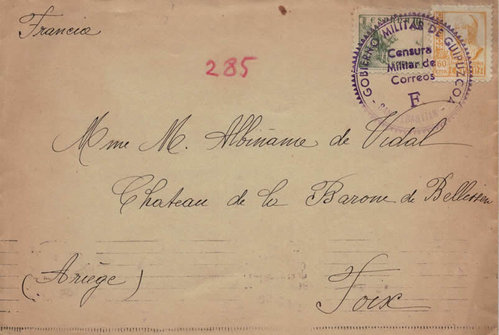 Francia
285
GOBIERNO MILITAR DE GUIPUZCOA
Censura
Militar de
Correos
F
SAN SEBASTIAN
60
Mme M. Albiñame de Vidal
Chateau de la Barone de Bellissen
(Ariège)
Foix